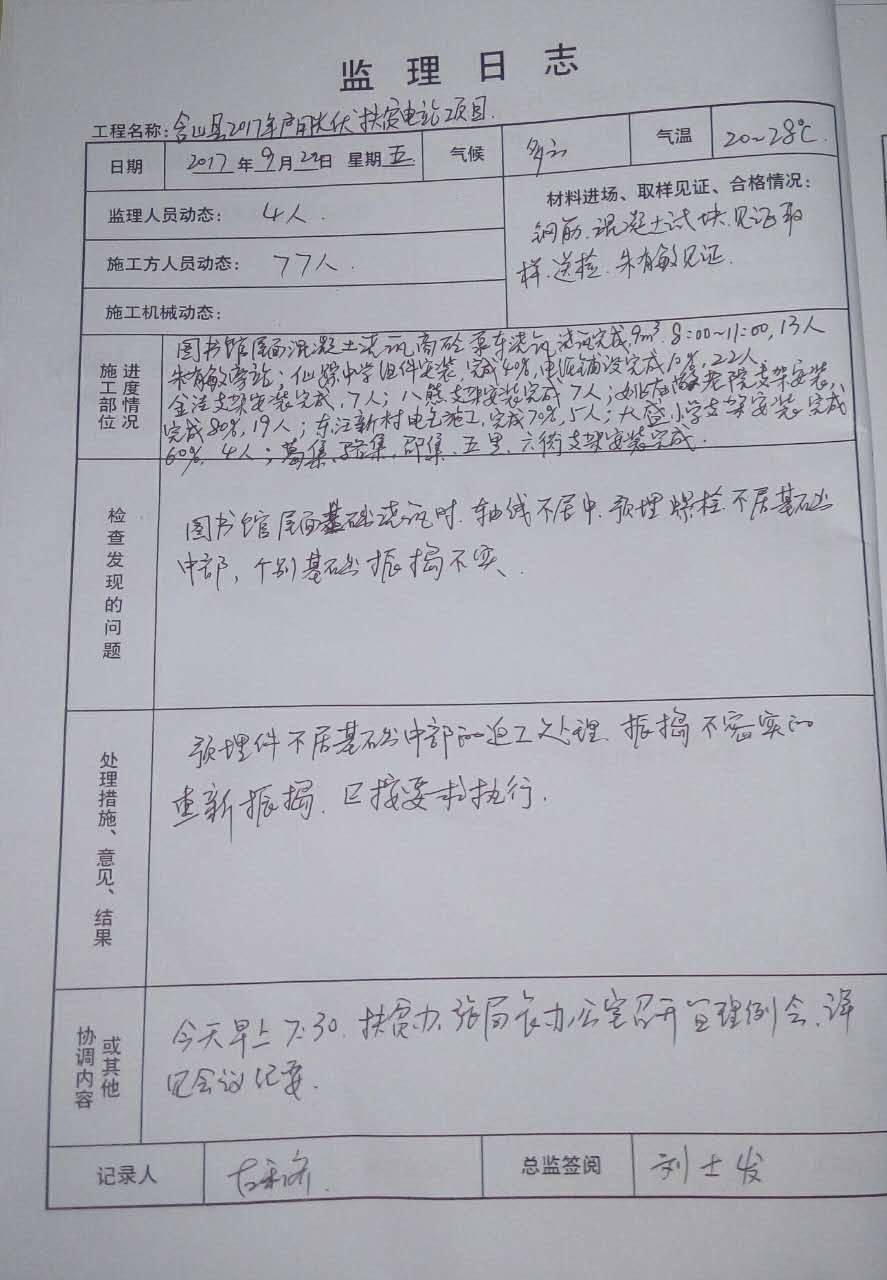 监理日志
工程名称：含山县2017年户用光伏扶贫电站项目.
日期 2017年9月22日 星期五 气候 多云 气温 20~28℃.
监理人员动态： 4人.
材料进场、取样见证、合格情况：
钢筋.混凝土试块.见证取
样.送检.朱有敏见证.
施工方人员动态： 77人.
施工机械动态：
施工部位进度情况
图书馆屋面混凝土浇筑商砼泵车浇筑,浇筑完成,9m³.8:00~11:00,13人
朱有敏旁站；仙踪中学组件安装,完成40%,电缆铺设完成10%,22人
支架安装完成,7人；八熊支架安装完成,7人；姚庙敬老院支架安装,
完成80%,19人；东江新村电气施工,完成70%,5人；大盛小学支架安装,完成
60%,4人；葛集、骆集、邵集、五里、六衖支架安装完成.
检查发现的问题
图书馆屋面基础浇筑时.轴线不居中.预埋螺栓不居基础
中部，个别基础振捣不实、
处理措施、意见、结果
预埋件不居基础中部的返工处理.振捣不密实的
重新振捣.已按要求执行.
协调内容或其他
今天早上7:30.扶贫办.张局长办公室召开监理例会.详
见会议纪要.
记录人 总监签阅 刘士发